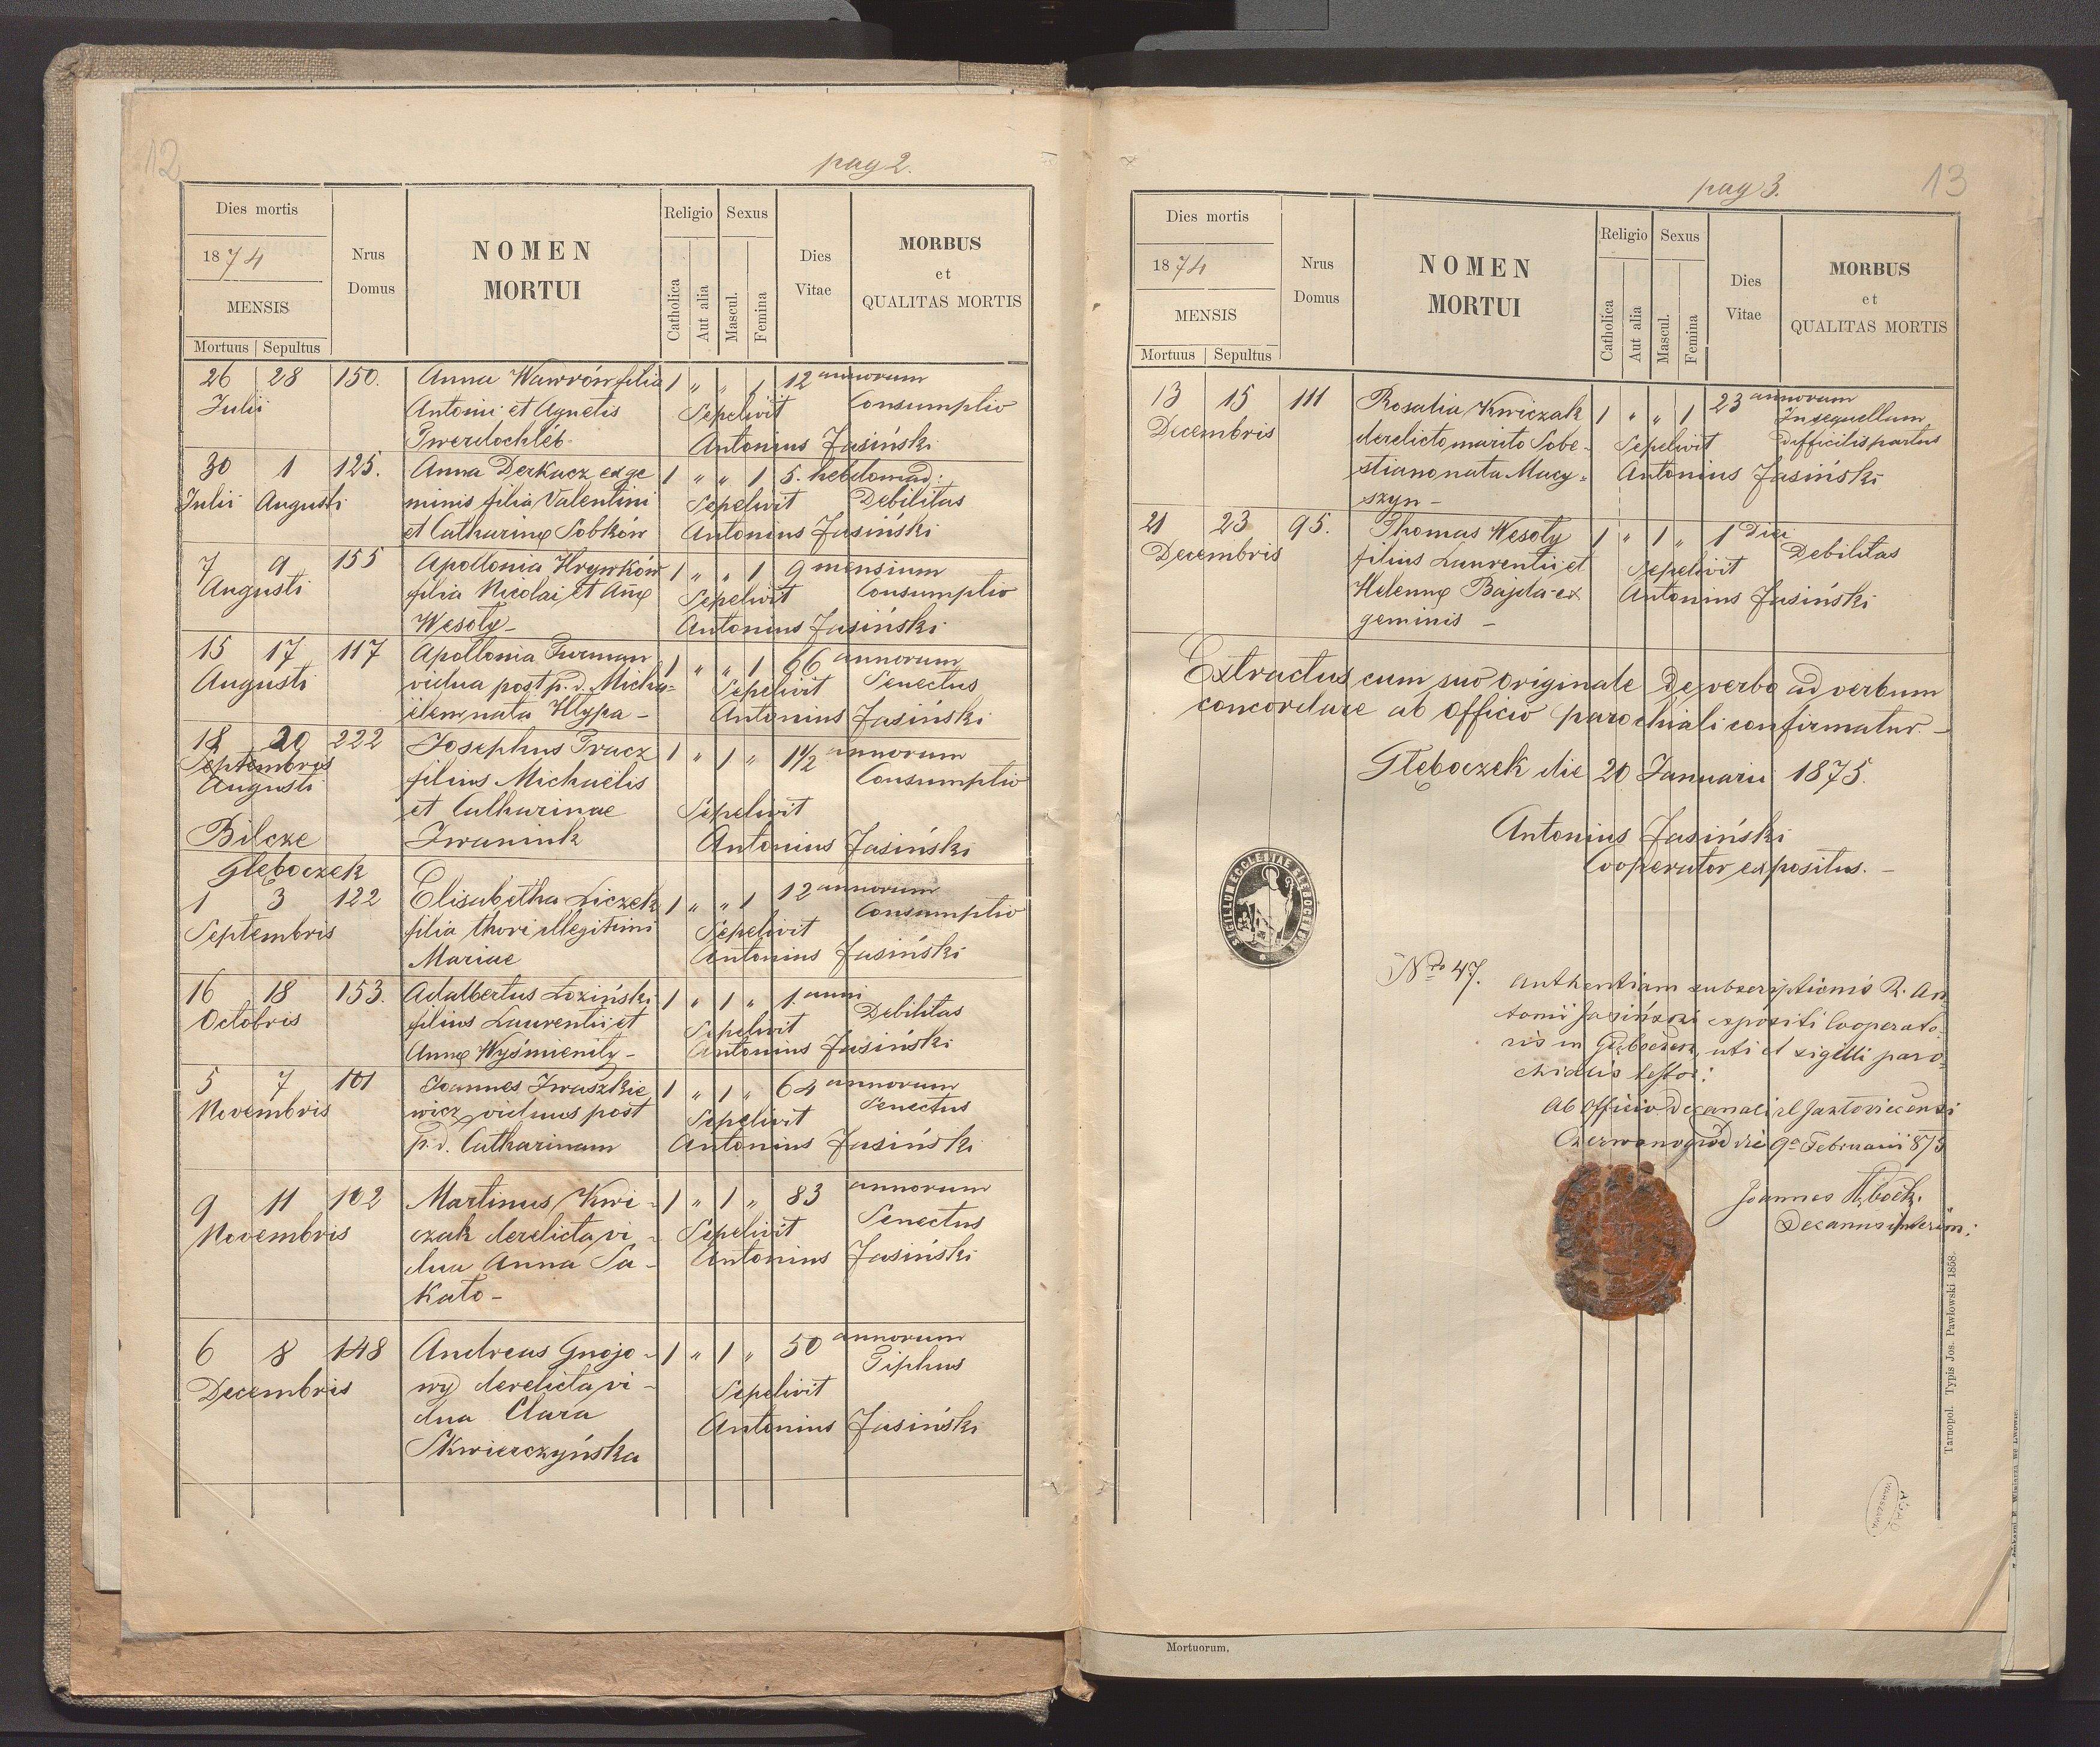 12
pag 2.
Dies mortis
1874
MENSIS
Mortuus | Sepultus
Nrus Domus
NOMEN MORTUI
Religio
Catholica
Aut alia
Sexus
Mascul.
Femina
Dies Vitae
MORBUS et QUALITAS MORTIS
26 28 150. Anna Wawrów filia 1 " " 1 12 annorum
Julii Antonii et Agnetis Sepelivit Consumptio
Twerdochléb Antonius Jasiński
30 1 125. Anna Derkacz ex ge 1 " " 1 5. hebdomad:
Julii Augusti minis filia Valentini Sepelivit Debilitas
et Catharinę Sobków Antonius Jasiński
7 9 155 Apollonia Hrywków 1 " " 1 9 mensium
Augusti filia Nicolai et Anę Sepelivit Consumptio
Wesoły – Antonius Jasiński
15 17 117 Apollonia Furman 1 " " 1 66 annorum
Augusti vidua post p. d. Micha= Sepelivit Senectus
elem nata Hlypa – Antonius Jasiński
18 20 222 Josephus Tracz 1 " 1 " 1 1/2 annorum
Septembris
Augusti filius Michaelis Consumptio
et Catharinae Sepelivit
Bilcze Iwaniuk Antonius Jasiński
Głeboczek
1 3 122 Elisabetha Liczek 1 " " 1 12 annorum
Septembris filia thori illegitimi Sepelivit Consumptio
Mariae Antonius Jasiński
16 18 153. Adalbertus Łoziński 1 " 1 " 1. anni
Octobris filius Laurentii et Sepelivit Debilitas
Annę Wyśmienity – Antonius Jasiński
5 7 101 Joannes Iwaszkie 1 " 1 " 64 annorum
Novembris wicz viduus post Sepelivit Senectus
p. d. Catharinam Antonius Jasiński
9 11 102 Martinus Kwi- 1 " 1 " 83 annorum
Novembris czak derelicta vi- Sepelivit Senectus
dua Anna Sa- Antonius Jasiński
kato –
6 8 148 Andreas Gnojo- 1 " 1 " 50 annorum
Decembris wy derelicta vi- Sepelivit Tiphus
dua Clara Antonius Jasiński
Skwierczyńska
pag 3.
13
Dies mortis
1874
MENSIS
Mortuus | Sepultus
Nrus Domus
NOMEN MORTUI
Religio
Catholica
Aut alia
Sexus
Mascul.
Femina
Dies Vitae
MORBUS et QUALITAS MORTIS
13 15 111 Rosalia Kwiczak 1 " " 1 23 annorum
Decembris derelicto marito Sobe- Sepelivit In sequellam difficilis partus
stiano nata Macy= Antonius Jasiński
szyn –
21 23 95. Thomas Wesoły 1 " 1 " 1 Diei
Decembris filius Laurentii et Sepelivit Debilitas
Helennę Bajda ex Antonius Jasiński
geminis –
Extractus cum suo originale de verbo ad verbum
concordare ab officio parochiali confirmatur. –
Głeboczek die 20 Januarii 1875.
Antonius Jasiński
Cooperator expositus. –
SIGILLUM ECCLESIAE
Nro 47.
Authentiam subscriptionis R. An
tonii Jasiński expositi Cooperato
ris in Głęboczek, uti et sigilli paro
chialis testor:
Ab officio Decanali rl Jazłoviecensi
Czerwonogród die 9a Februarii 875
Joannes
Decanus interim:
Tarnopol. Typis Jos. Pawłowski 1858.
AGAD
WARSZAWA
Mortuorum.